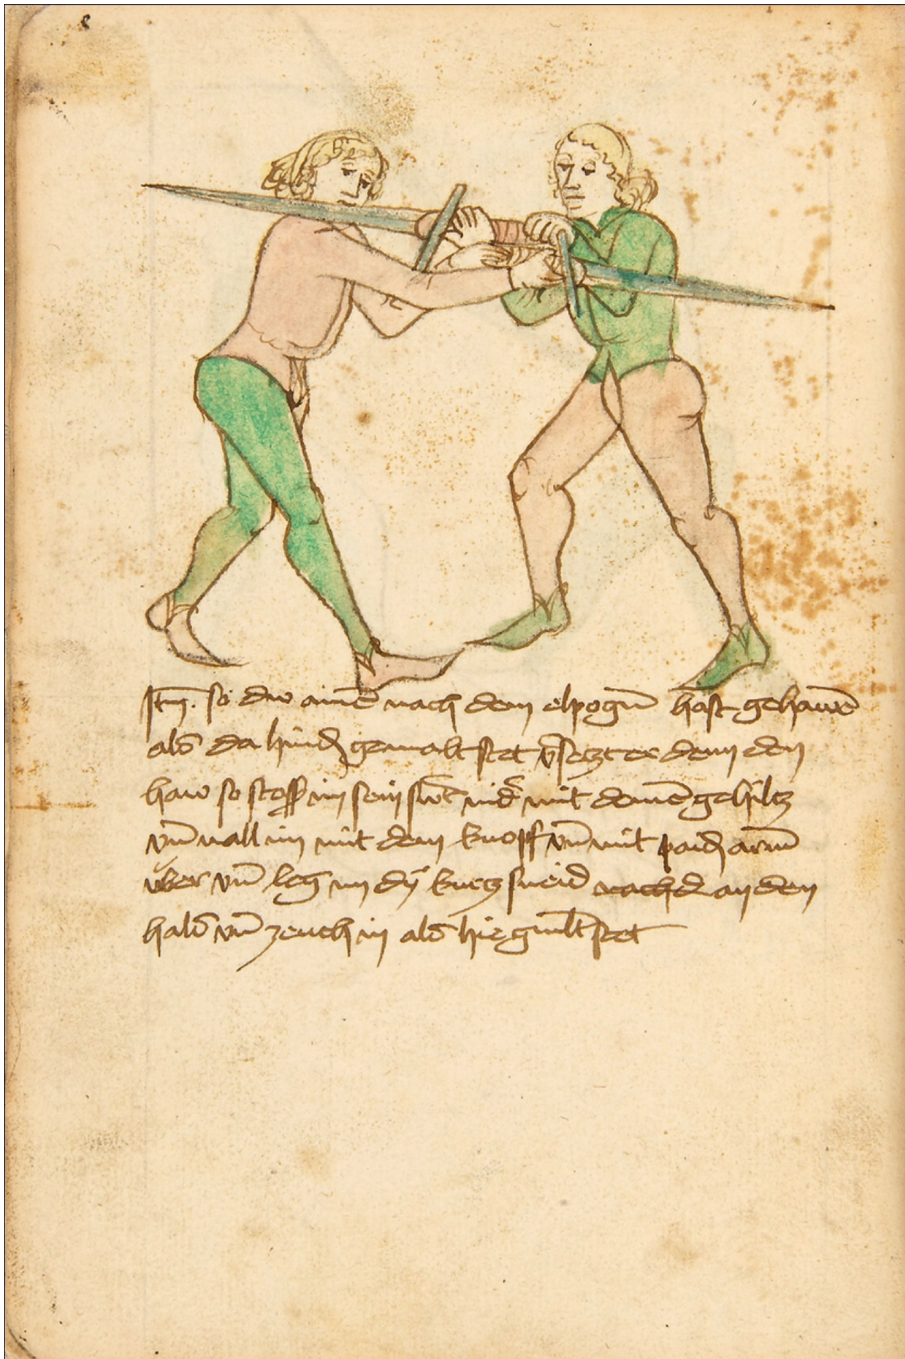 Itm̄. so dw ainē nach dem elpogn̄ hast gehawē
als da hindn̄ gemalt stet v̄setzt er dem den
haw so stoss im sein swt̄ nidr̄ mit deinē gehiltz
vn̄ vall im mit dem knopff vn̄ mit paidn̄ armn̄
vber vn̄ leg im dÿ kurtz sneid an den
hals vn̄ zeuch in als hie gmalt stet